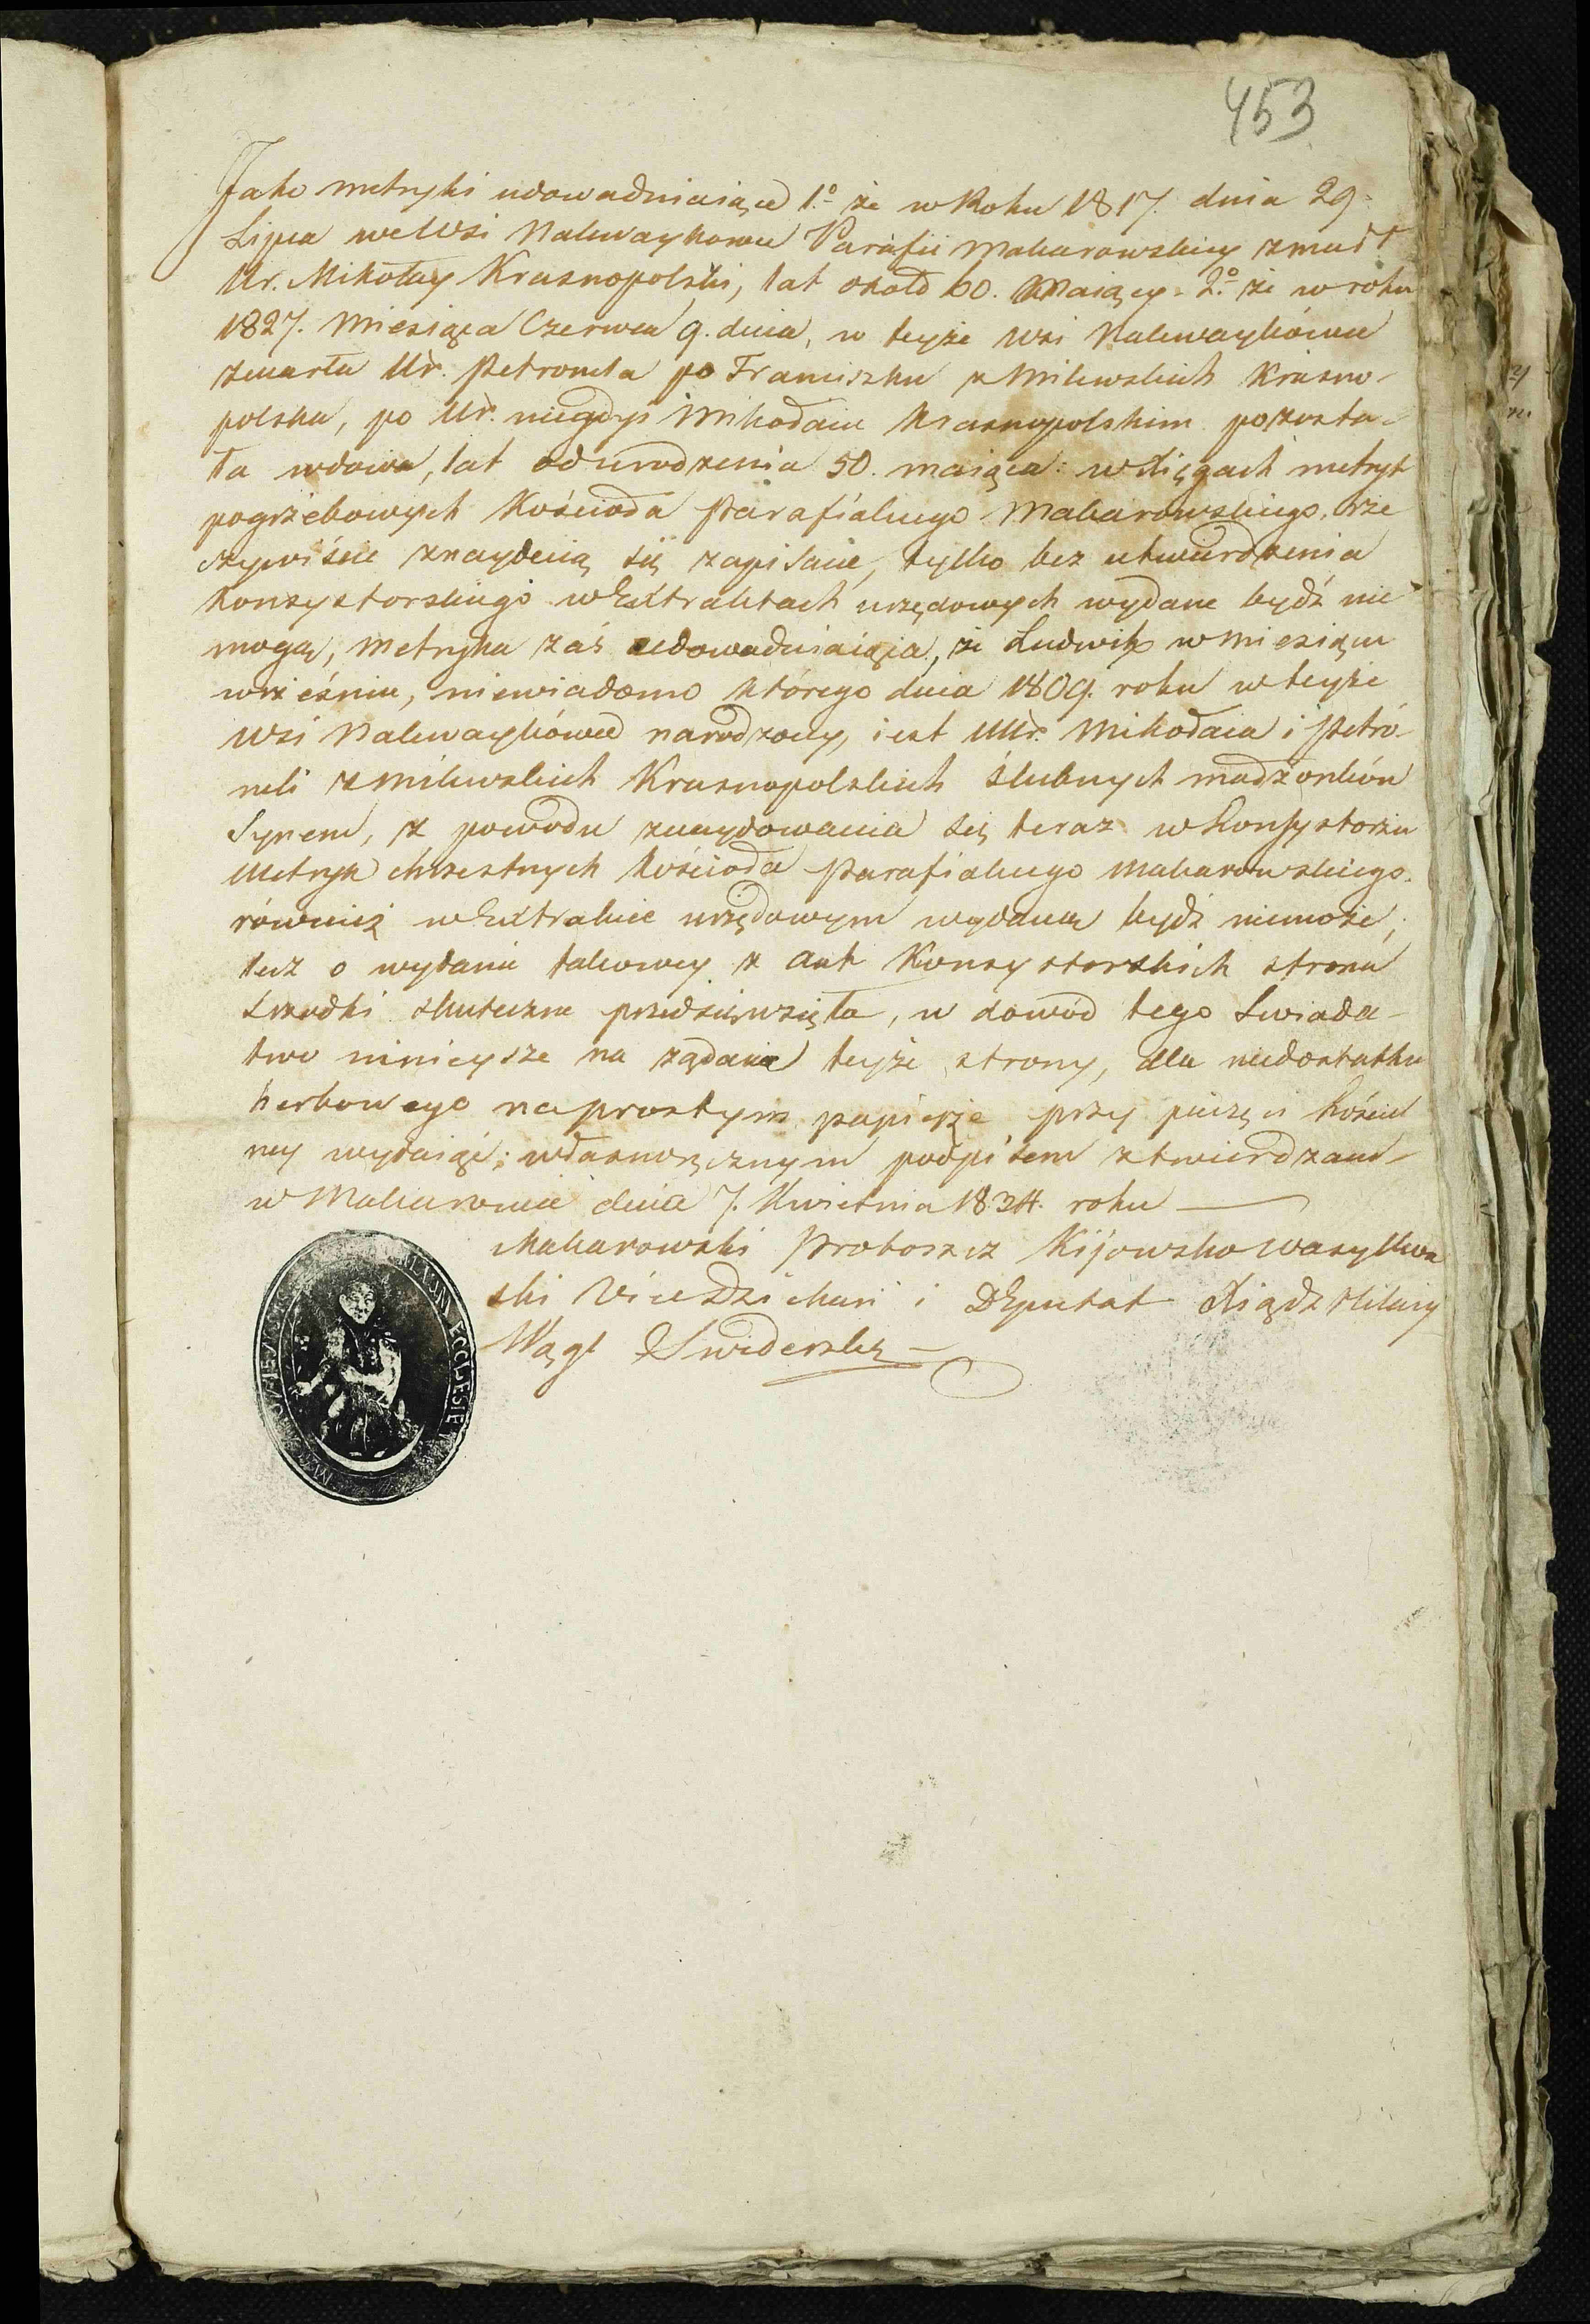 453
Jako metryki udowadniaiące 1.o że w Roku 1817. dnia 29.
Lipca we Wsi Nalewaykowce Parafii Makarowskiey zmarł
Ur. Mikołay Krasnopolski, lat około 60. Maiący. 2.o że w roku
1827. Miesiąca Czerwca 9. dnia, w teyże wsi Nalewaykówce
zmarła Ur. Petronela po Franciszku z Milewskich Krasno-
polska, po Ur. niegdyś Mikołaiu Krasnopolskim pozosta-
ła wdowa, lat od urodzenia 50. maiąca: w Xięgach metryk
pogrzebowych Kościoła Parafialnego Makarowskiego, rze
czywiście znayduią się zapisane, tylko bez utwierdzenia
Konsystorskiego w Extraktach urzędowych wydane bydź nie
mogą; Metryka zaś udowadniaiąca, że Ludwik w miesiącu
wrześniu, niewiadomo którego dnia 1809. roku w teyże
wsi Nalewaykówce narodzony, iest UUr. Mikołaia i Petro-
neli z Milewskich Krasnopolskich ślubnych małżonków
Synem, z powodu znaydowania się teraz w Konsystorzu
Metryk chrzestnych Kościoła Parafialnego Makarowskiego.
również w Extrakcie urzędowym wydana bydź niemoże;
lecz o wydanie takowey z akt Konsystorskich strona
szrodki skuteczne przedsięwzięła, w dowód tego Swiadec-
two ninieysze na żądanie teyże strony, dla niedostatku
herbowego na prostym papierze przy pieczęci Kościel
ney wydaiąc; własnoręcznym podpisem ztwierdzam -
w Makarowie dnia 7. Kwietnia 1834. roku
Makarowski Proboszcz Kijowsko Wasylkow
ski Vice Dziekan i Deputat Xiądz Hilary
Swiderski
ECCLESIE